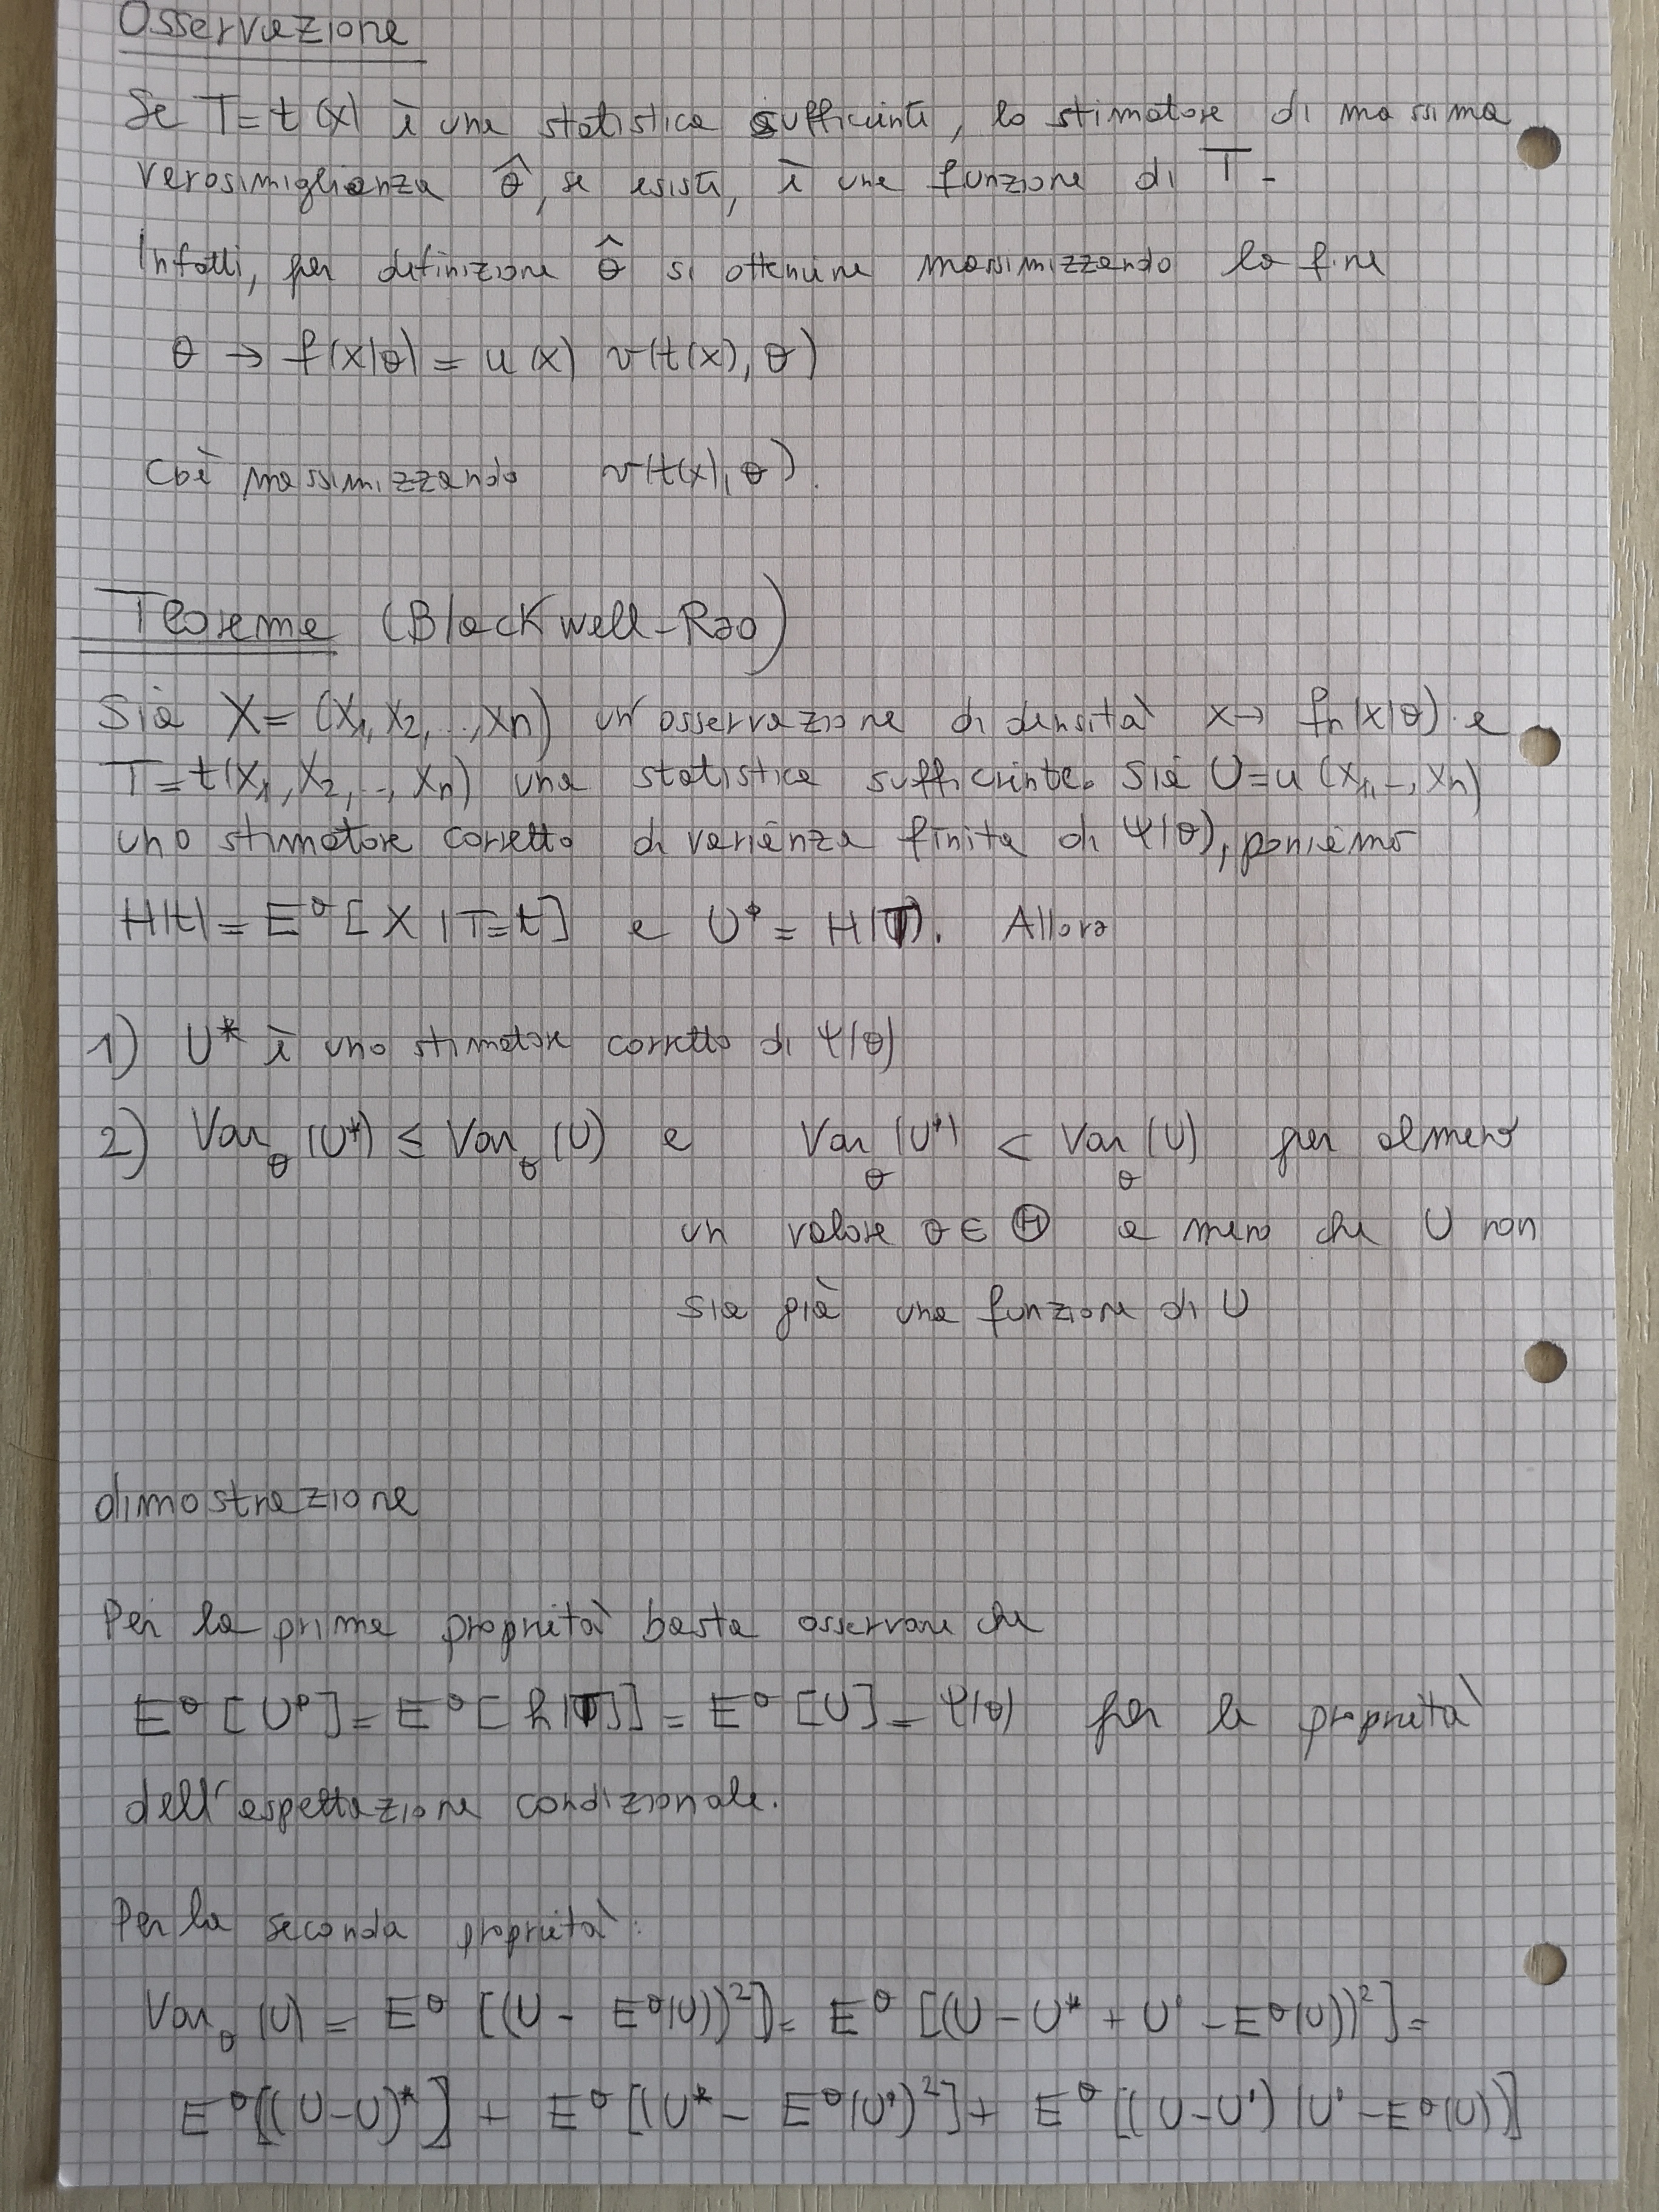 Osservazione
Se T=t(x) è una statistica sufficiente, lo stimatore di massima
verosimiglianza θ̂, se esiste, è una funzione di T.
Infatti, per definizione θ̂ si ottenine massimizzando la f.ne
θ → f(x|θ) = u(x) v(t(x), θ)
Cioè massimizzando v(t(x), θ).
Teorema (Blackwell-Rao)
Sia X = (X₁, X₂, .., Xn) un'osservazione di densità x → fn(x|θ) e
T = t(X₁, X₂, .., Xn) una statistica sufficiente. Sia U = u(X₁, -, Xn)
uno stimatore corretto di varianza finita di Ψ(θ), poniamo
H(t) = E^θ [X | T=t] e U* = H(T). Allora
1) U* è uno stimatore corretto di Ψ(θ)
2) Var_θ (U*) ≤ Var_θ (U) e Var_θ (U*) < Var_θ (U) per almeno
un valore θ ∈ Θ a meno che U non
sia già una funzione di U
dimostrazione
Per la prima proprietà basta osservare che
E^θ [U*] = E^θ [h(T)] = E^θ [U] = Ψ(θ) per la proprietà
dell'aspettazione condizionale.
Per la seconda proprietà:
Var_θ (U) = E^θ [(U - E^θ(U))²] = E^θ [(U - U* + U* - E^θ(U))²] =
E^θ[(U-U)*] + E^θ [(U* - E^θ(U*)²] + E^θ [(U-U*) (U* - E^θ(U))]